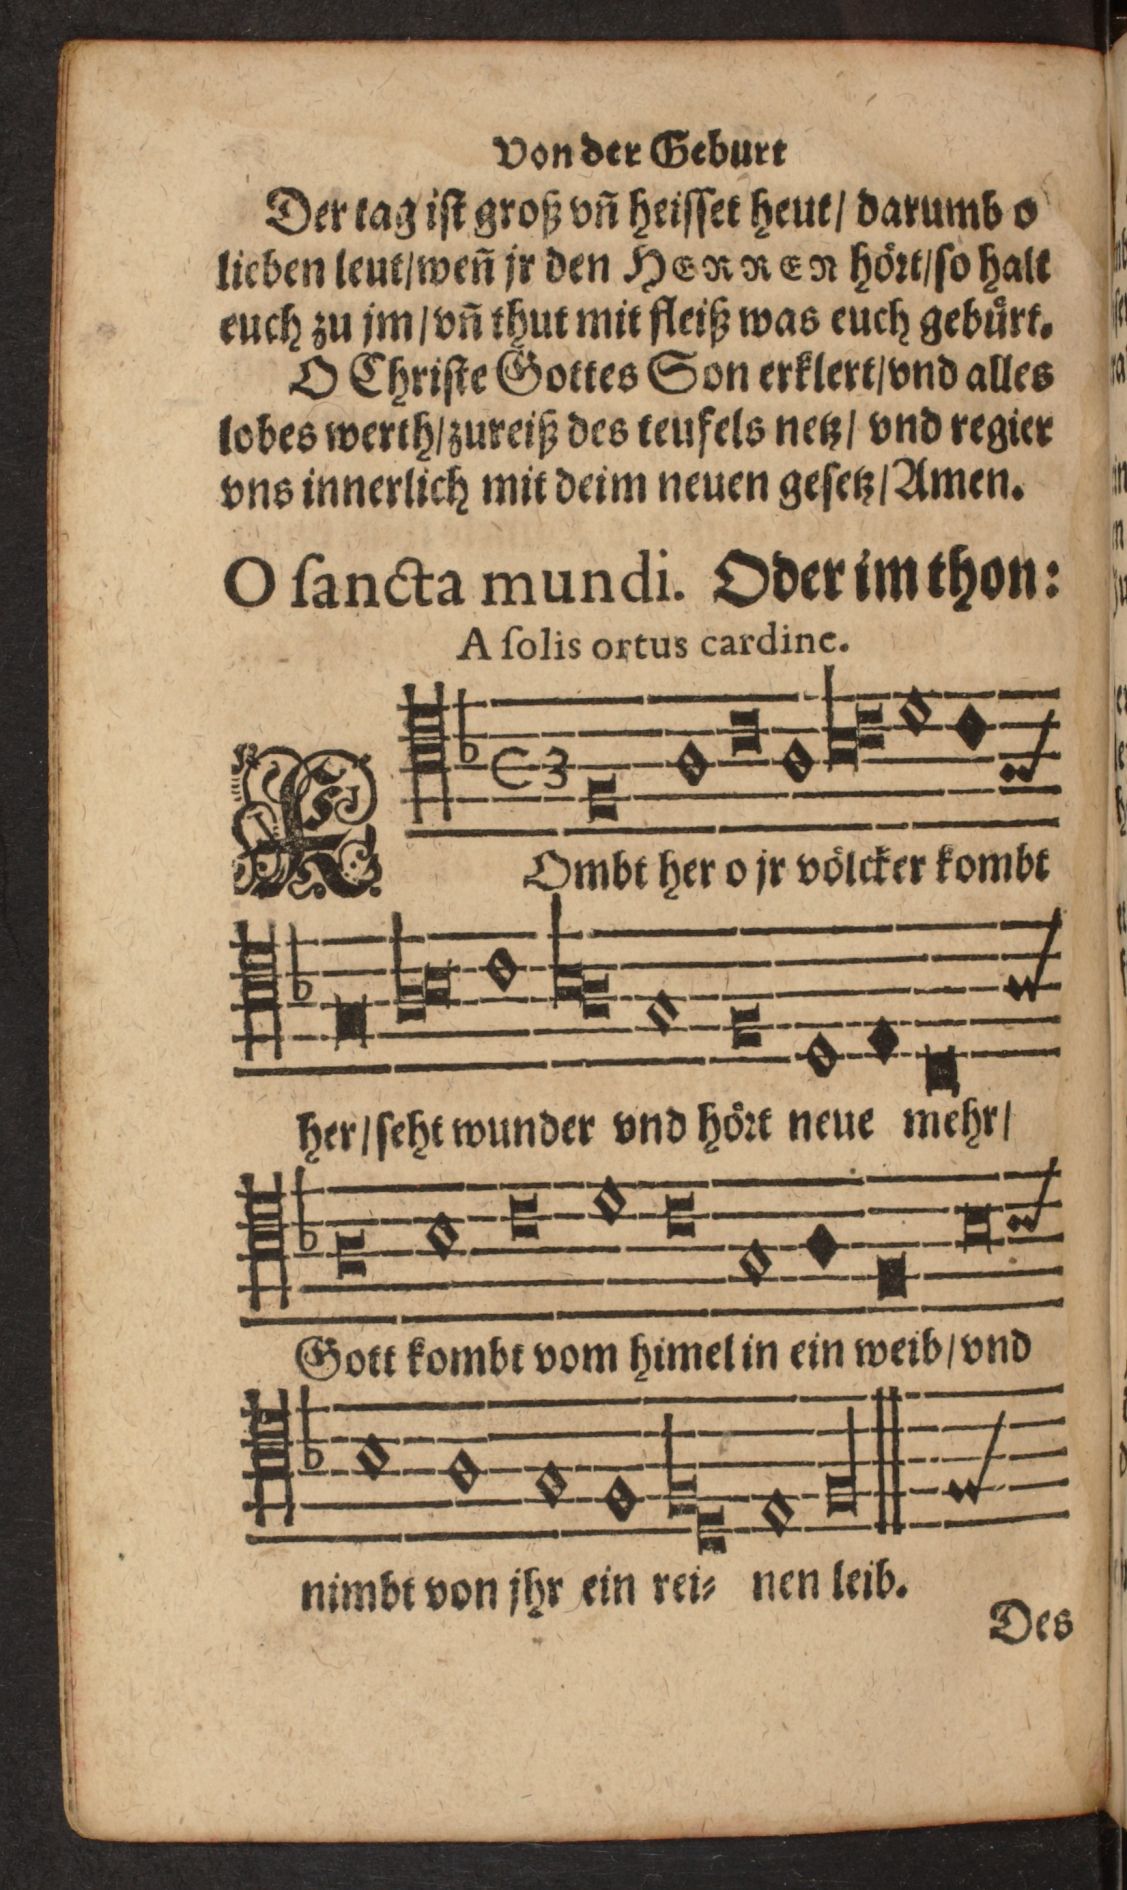 Von der Geburt
Der tag ist groß vñ heisset heut/ darumb o
lieben leut/weñ jr den HERREN hört/so halt
euch zu jm/vñ thut mit fleiß was euch gebürt.
O Christe Gottes Son erklert/vnd alles
lobes werth/zureiß des teufels netz/ vnd regier
vns innerlich mit deim neuen gesetz/Amen.
O ſancta mundi. Oder im thon:
A ſolis ortus cardine.
KOmbt her o jr völcker kombt
her/seht wunder vnd hört neue mehr/
Gott kombt vom himel in ein weib/vnd
nimbt von jhr ein rei⸗ nen leib.
Des